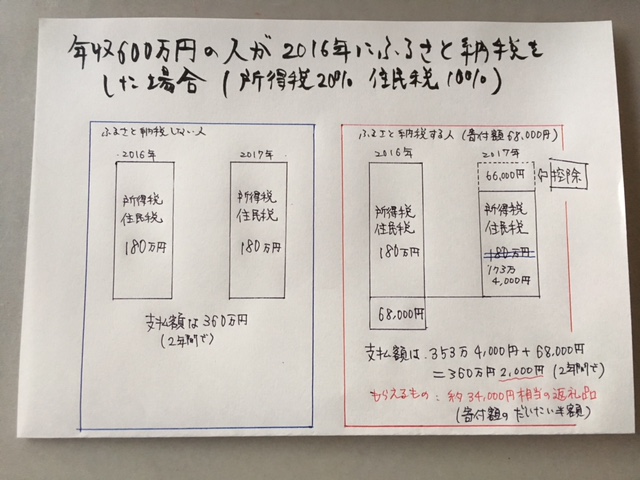 年収600万円の人が2016年にふるさと納税を
した場合(所得税20% 住民税10%)
ふるさと納税しない人
2016年
2017年
所得税
住民税
180万円
所得税
住民税
180万円
支払額は360万円
(2年間で)
ふるさと納税する人(寄付額68,000円)
2016年
2017年
所得税
住民税
180万円
68,000円
66,000円
⇦控除
所得税
住民税
180万円
173万
4,000円
支払額は、353万4,000円+68,000円
=360万円2,000円(2年間で)
もらえるもの:約34,000円相当の返礼品
(寄付額のだいたい半額)